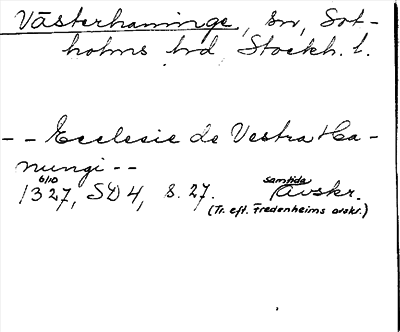 Västerhaninge, sn, Sot-
holms hd, Stockh. l.
- - Ecclesie de Vestra Ha-
nungi - -
6/10 samtida
1327, SD 4, s. 27. Avskr.
(Tr. eft. Fredenheims avskr.)